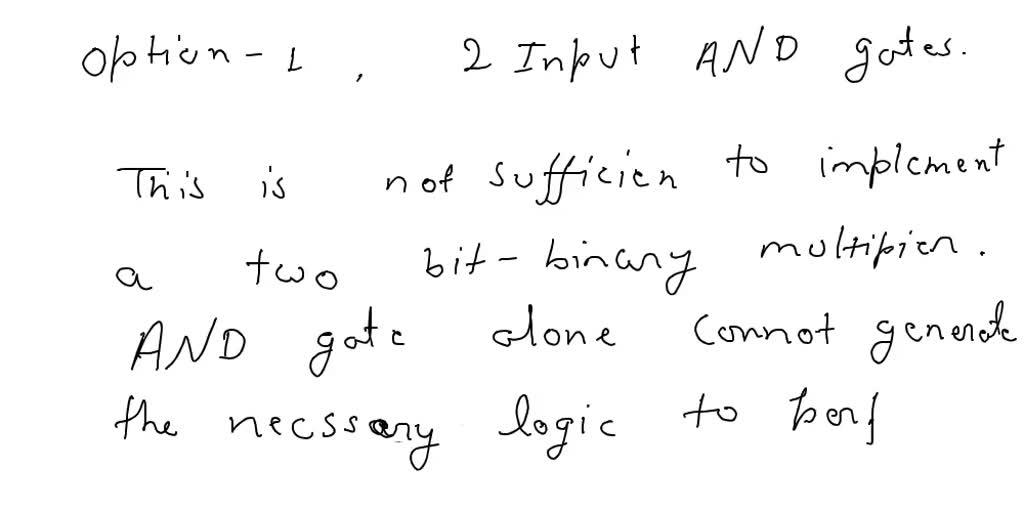 Option-1, 2 Input AND gates.
This is not sufficien to implement
a two bit-binary multipier.
AND gate alone cannot generate
the necssary logic to perf